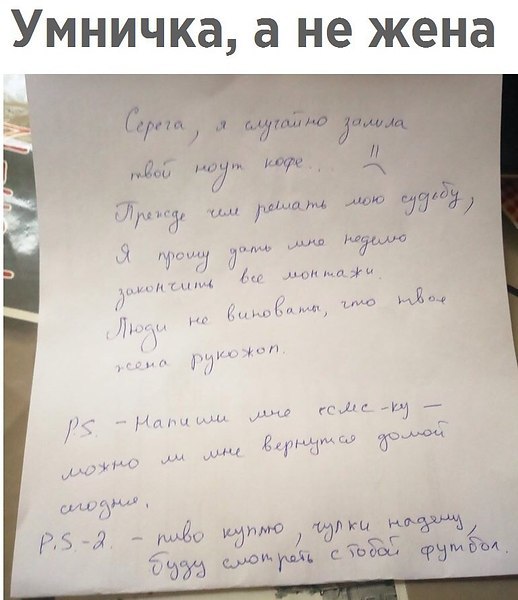 Умничка, а не жена
Серега, я случайно залила
твой ноут кофе...
Прежде чем решать мою судьбу,
Я прошу дать мне неделю
закончить все монтажи.
Люди не виноваты, что твоя
жена рукожоп.
P.S. - Напиши мне есмс-ку -
можно ли мне вернутся домой
сегодня.
P.S-2. - пиво куплю, чулки надену,
буду смотреть с тобой футбол.